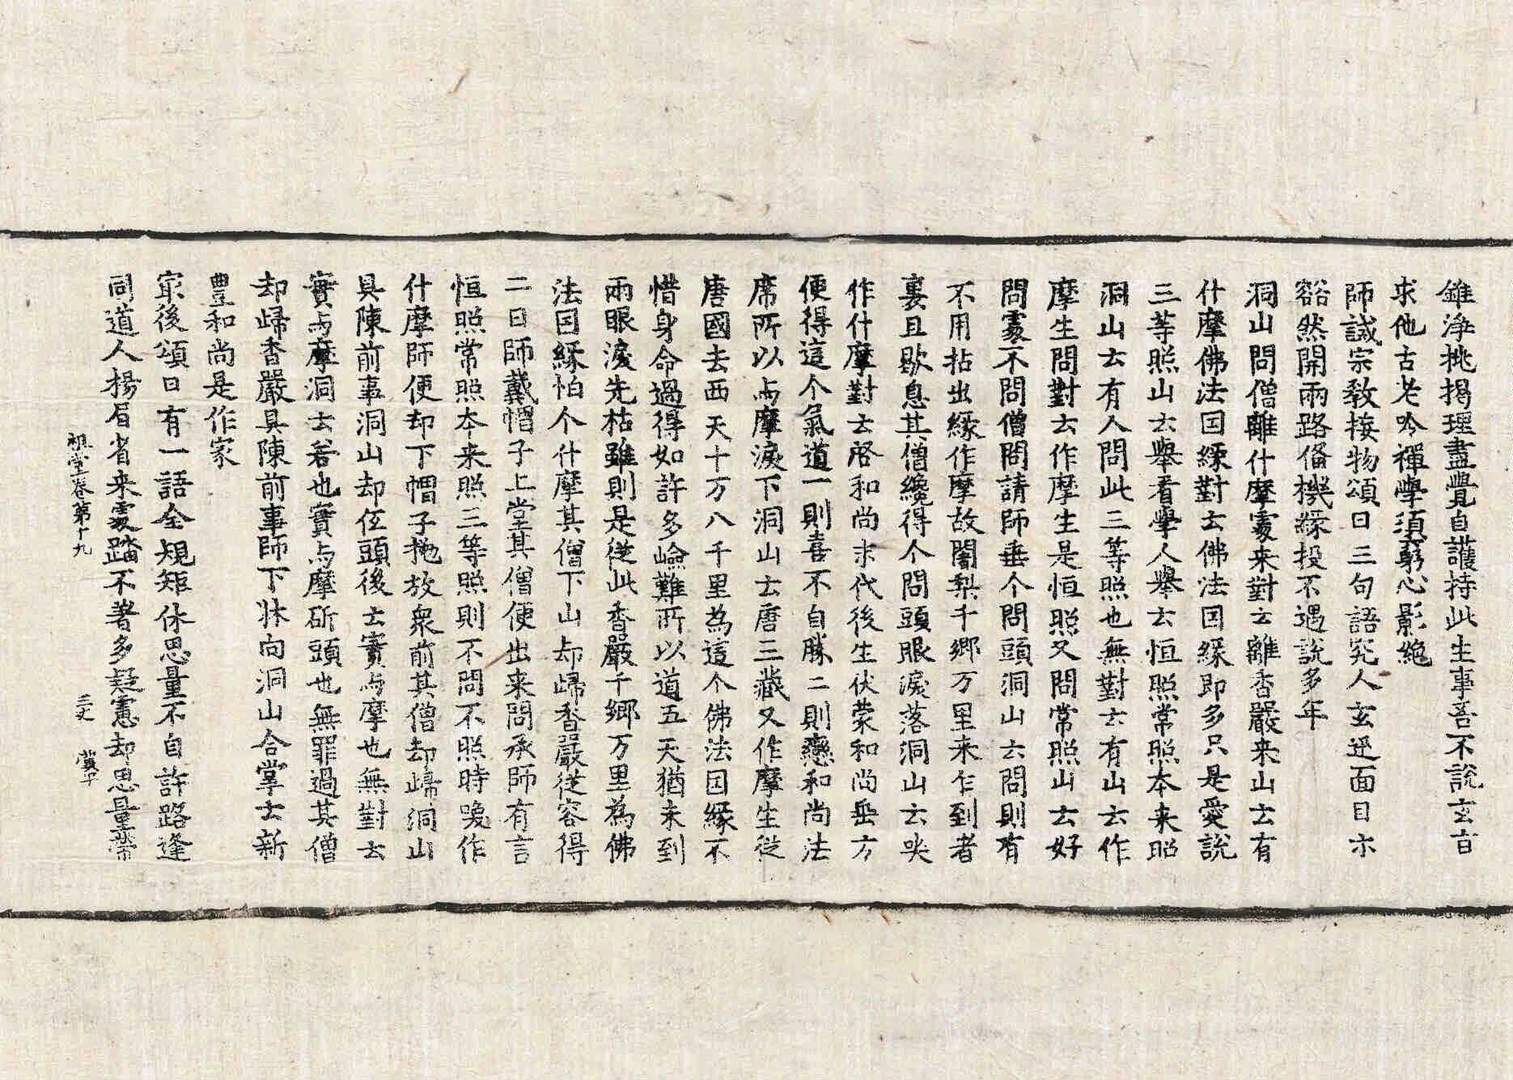 錐淨挑揭理盡覺自護持此生事吾不說玄旨
求他古老吟禪學須窮心影絶
師誡宗教接物頌曰三句語究人玄逕面目亦
豁然開兩路俻機緣投不遇說多年
洞山問僧離什摩處来對云離香嚴来山云有
什摩佛法因緣對云佛法因緣即多只是愛說
三等照山云舉看學人舉云恒照常照本来照
洞山云有人問此三等照也無對云有山云作
摩生問對云作摩生是恒照又問常照山云好
問處不問僧問請師垂个問頭洞山云問則有
不用拈出緣作摩故闍梨千鄉万里来乍到者
裏且歇息其僧纔得个問頭眼淚落洞山云哭
作什摩對云啓和尚末代後生伏蒙和尚垂方
便得這个氣道一則喜不自勝二則戀和尚法
席所以与摩淚下洞山云唐三藏又作摩生從
唐國去西天十万八千里為這个佛法因緣不
惜身命過得如許多嶮難所以道五天猶未到
兩眼淚先枯雖則是從此香嚴千鄉万里為佛
法因緣怕个什摩其僧下山却歸香嚴從容得
二日師戴㡌子上堂其僧便出来問承師有言
恒照常照本来照三等照則不問不照時喚作
什摩師便却下㡌子拋放衆前其僧却歸洞山
具陳前事洞山却伍頭後云實与摩也無對云
實与摩洞云若也實与摩斫頭也無罪過其僧
却歸香嚴具陳前事師下牀向洞山合掌云新
豊和尚是作家
冣後頌曰有一語全規矩休思量不自許路逢
同道人揚眉省来處踏不著多疑慮却思量帶
祖堂卷第十九